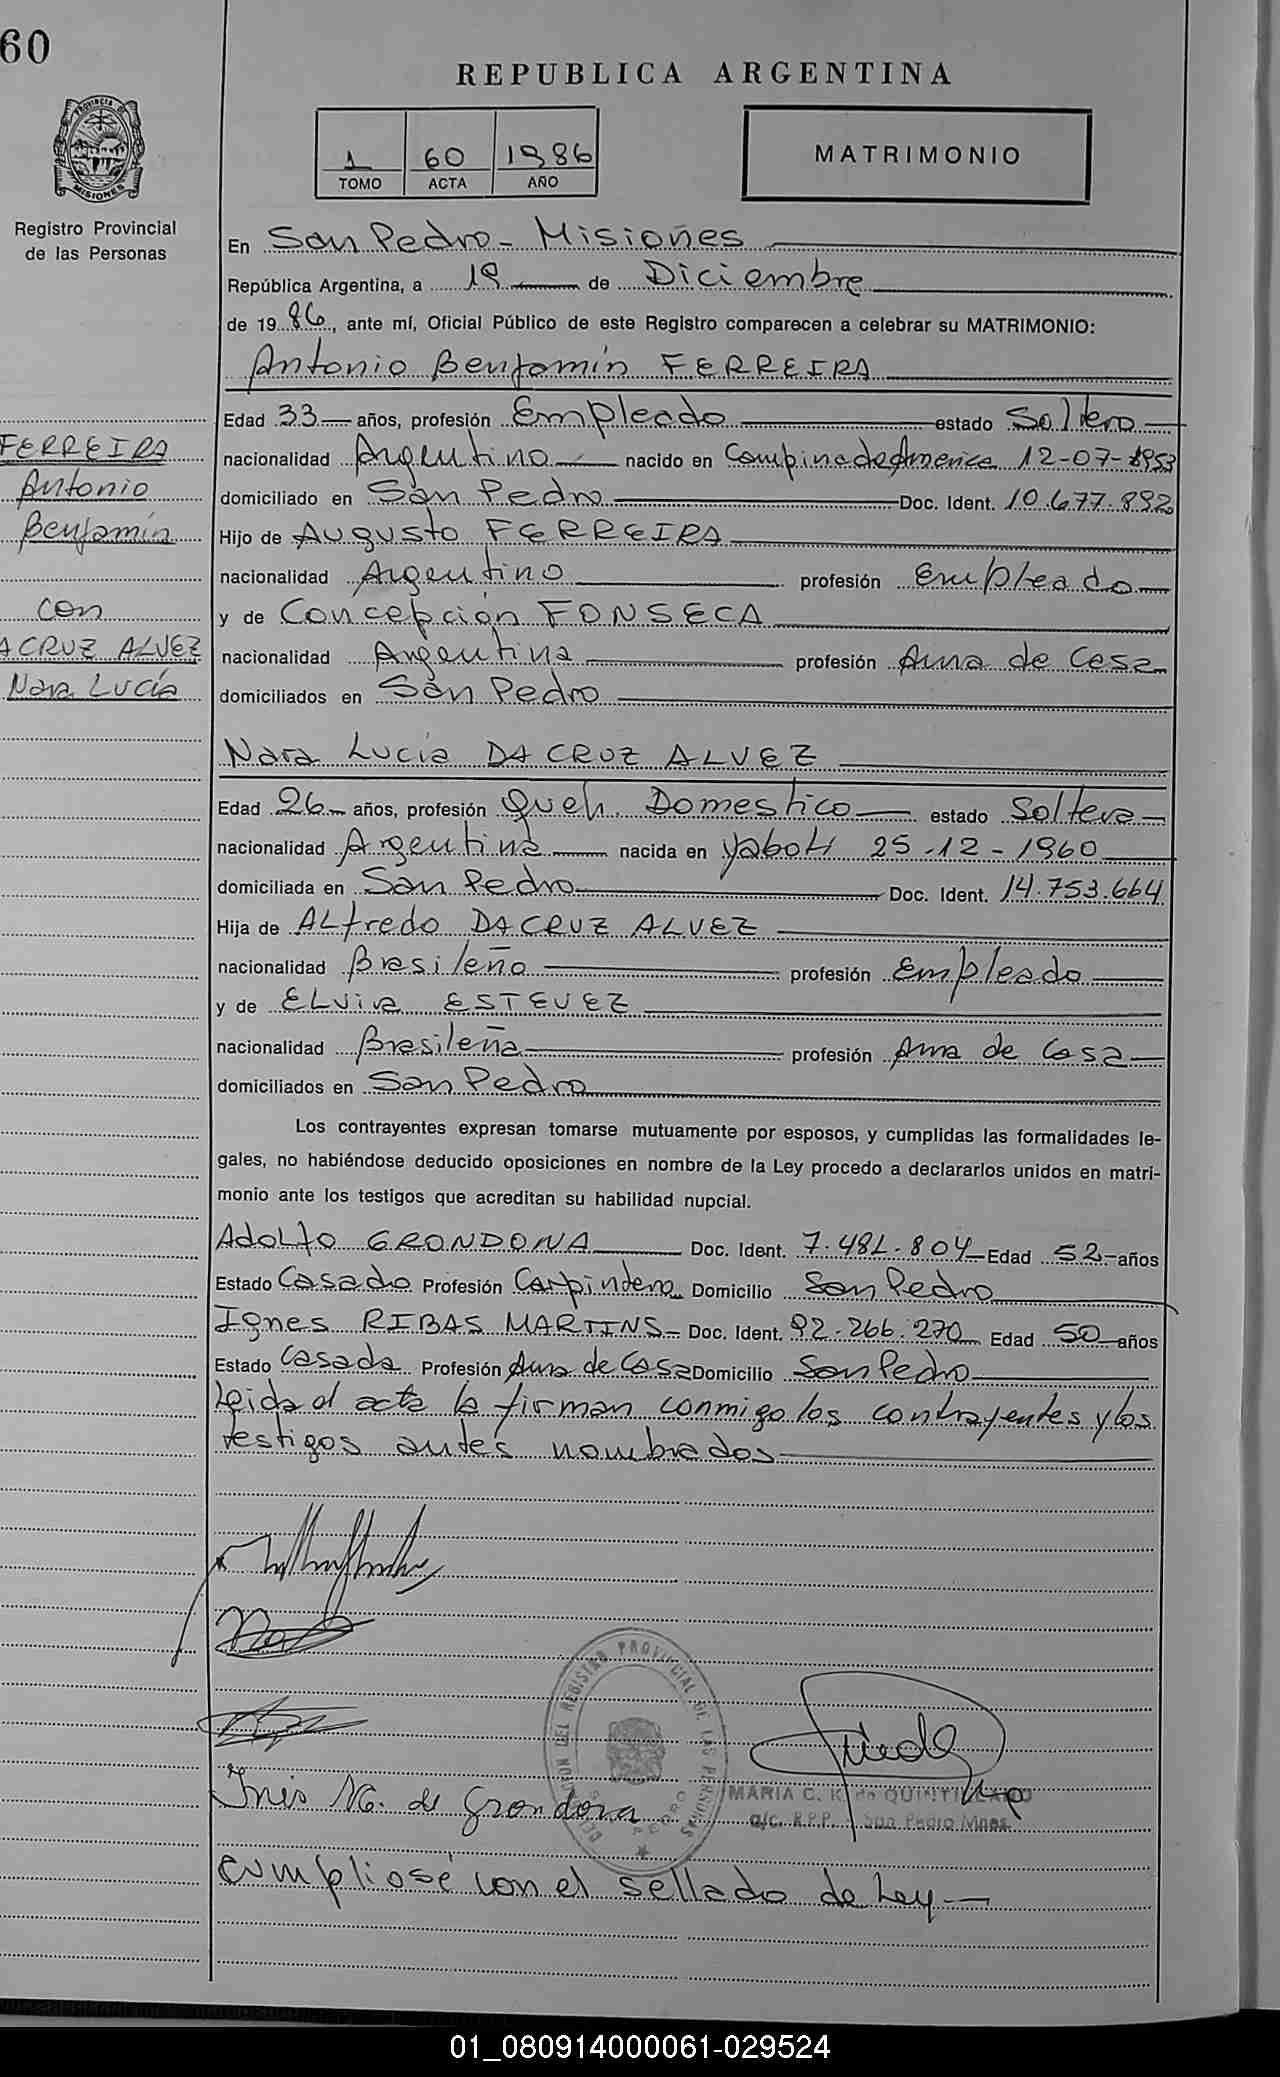 60
REPUBLICA ARGENTINA
PROVINCIA DE MISIONES
1 60 1986
TOMO ACTA AÑO
MATRIMONIO
Registro Provincial
de las Personas
En San Pedro - Misiones
República Argentina, a 19 de Diciembre
de 1986, ante mí, Oficial Público de este Registro comparecen a celebrar su MATRIMONIO:
Antonio Benjamín FERREIRA
Edad 33 años, profesión Empleado estado Soltero
FERREIRA
Antonio
Benjamín
con
ACRUZ ALVEZ
Nara Lucía
nacionalidad Argentino nacido en Campina de America 12-07-1953
domiciliado en San Pedro Doc. Ident. 10.677.892
Hijo de Augusto FERREIRA
nacionalidad Argentino profesión Empleado
y de Concepción FONSECA
nacionalidad Argentina profesión Ama de Casa
domiciliados en San Pedro
Nara Lucia DACRUZ ALVEZ
Edad 26 años, profesión Queh. Domestico estado Soltera
nacionalidad Argentina nacida en Yaboti 25-12-1960
domiciliada en San Pedro Doc. Ident. 14.753.664
Hija de ALfredo DACRUZ ALVEZ
nacionalidad Brasileño profesión Empleado
y de ELvira ESTEVEZ
nacionalidad Brasileña profesión Ama de Casa
domiciliados en San Pedro
Los contrayentes expresan tomarse mutuamente por esposos, y cumplidas las formalidades le-
gales, no habiéndose deducido oposiciones en nombre de la Ley procedo a declararlos unidos en matri-
monio ante los testigos que acreditan su habilidad nupcial.
Adolfo GRONDONA Doc. Ident. 7.481.804 Edad 52 años
Estado Casado Profesión Carpintero Domicilio San Pedro
Ignes RIBAS MARTINS Doc. Ident. 92.266.270 Edad 50 años
Estado Casada Profesión Ama de Casa Domicilio San Pedro
Leida el acta la firman conmigo los contrayentes y los
testigos antes nombrados
DEL REGISTRO PROVINCIAL DE LAS PERSONAS
SAN PEDRO
Inés M. de Grondona
MARIA C. K. de
a/c. R.P.P. San Pedro Mnes.
cumpliose con el sellado de Ley
01_080914000061-029524